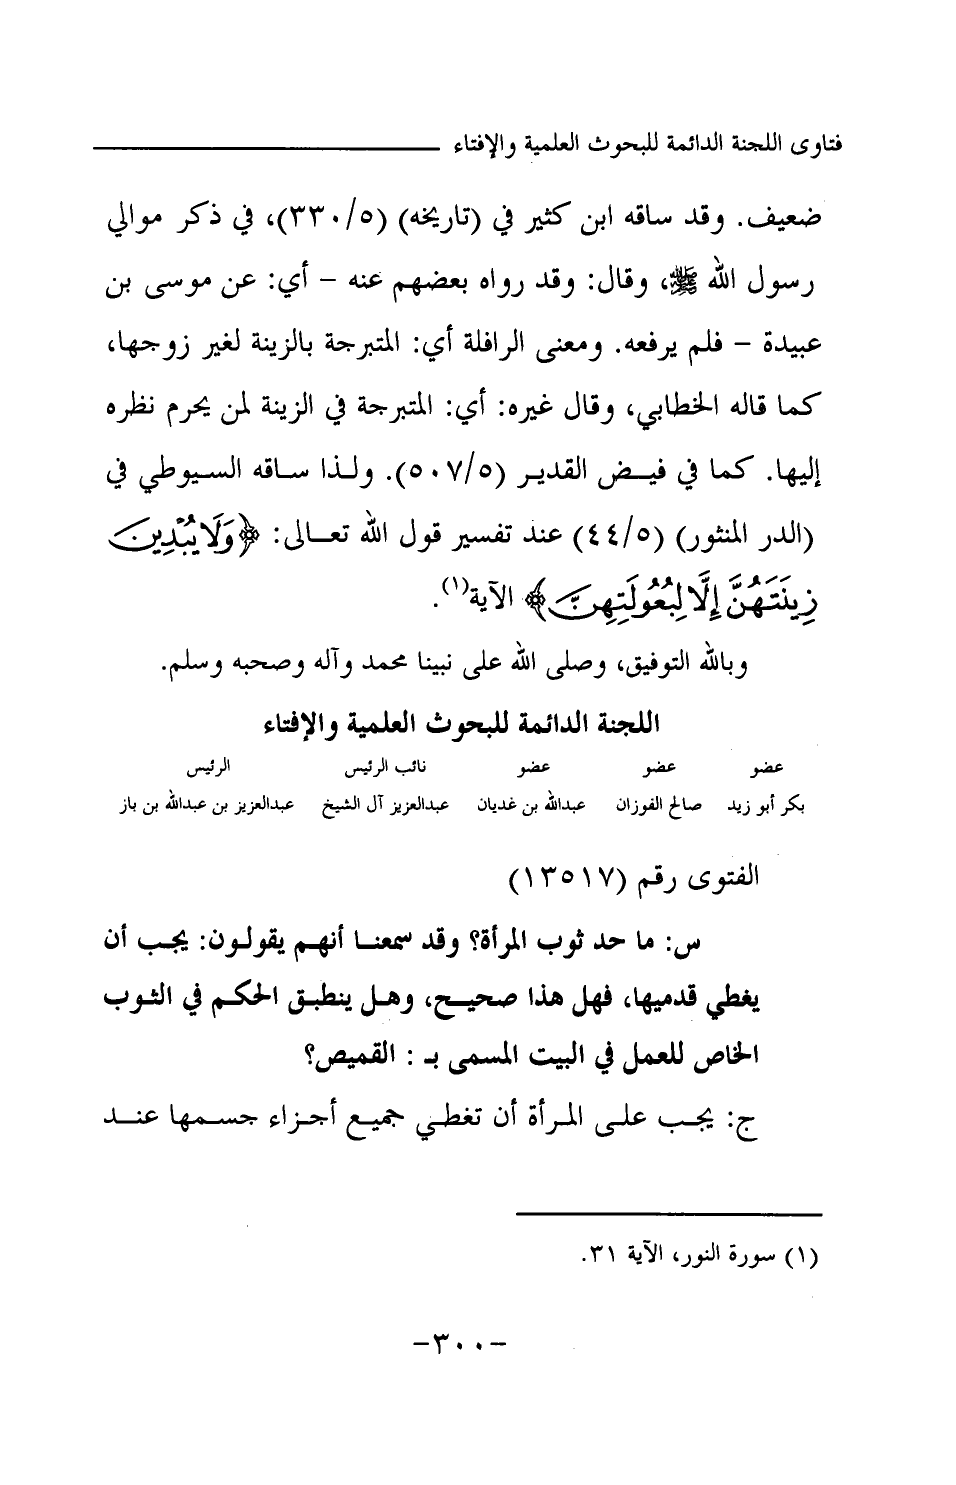 فتاوى اللجنة الدائمة للبحوث العلمية والإفتاء
ضعيف. وقد ساقه ابن كثير في (تاريخه) (٣٣٠/٥)، في ذكر موالي
رسول الله ﷺ، وقال: وقد رواه بعضهم عنه – أي: عن موسى بن
عبيدة – فلم يرفعه. ومعنى الرافلة أي: المتبرجة بالزينة لغير زوجها،
كما قاله الخطابي، وقال غيره: أي: المتبرجة في الزينة لمن يحرم نظره
إليها. كما في فيض القدير (٥٠٧/٥). ولذا ساقه السيوطي في
(الدر المنثور) (٤٤/٥) عند تفسير قول الله تعالى: ﴿وَلَا يُبْدِينَ
زِينَتَهُنَّ إِلَّا لِبُعُولَتِهِنَّ﴾ الآية(١).
وبالله التوفيق، وصلى الله على نبينا محمد وآله وصحبه وسلم.
اللجنة الدائمة للبحوث العلمية والإفتاء
عضو عضو عضو نائب الرئيس الرئيس
بكر أبو زيد صالح الفوزان عبدالله بن غديان عبدالعزيز آل الشيخ عبدالعزيز بن عبدالله بن باز
الفتوى رقم (١٣٥١٧)
س: ما حد ثوب المرأة؟ وقد سمعنا أنهم يقولون: يجب أن
يغطي قدميها، فهل هذا صحيح، وهل ينطبق الحكم في الثوب
الخاص للعمل في البيت المسمى بـ : القميص؟
ج: يجب على المرأة أن تغطي جميع أجزاء جسمها عند
(١) سورة النور، الآية ٣١.
–٣٠٠–